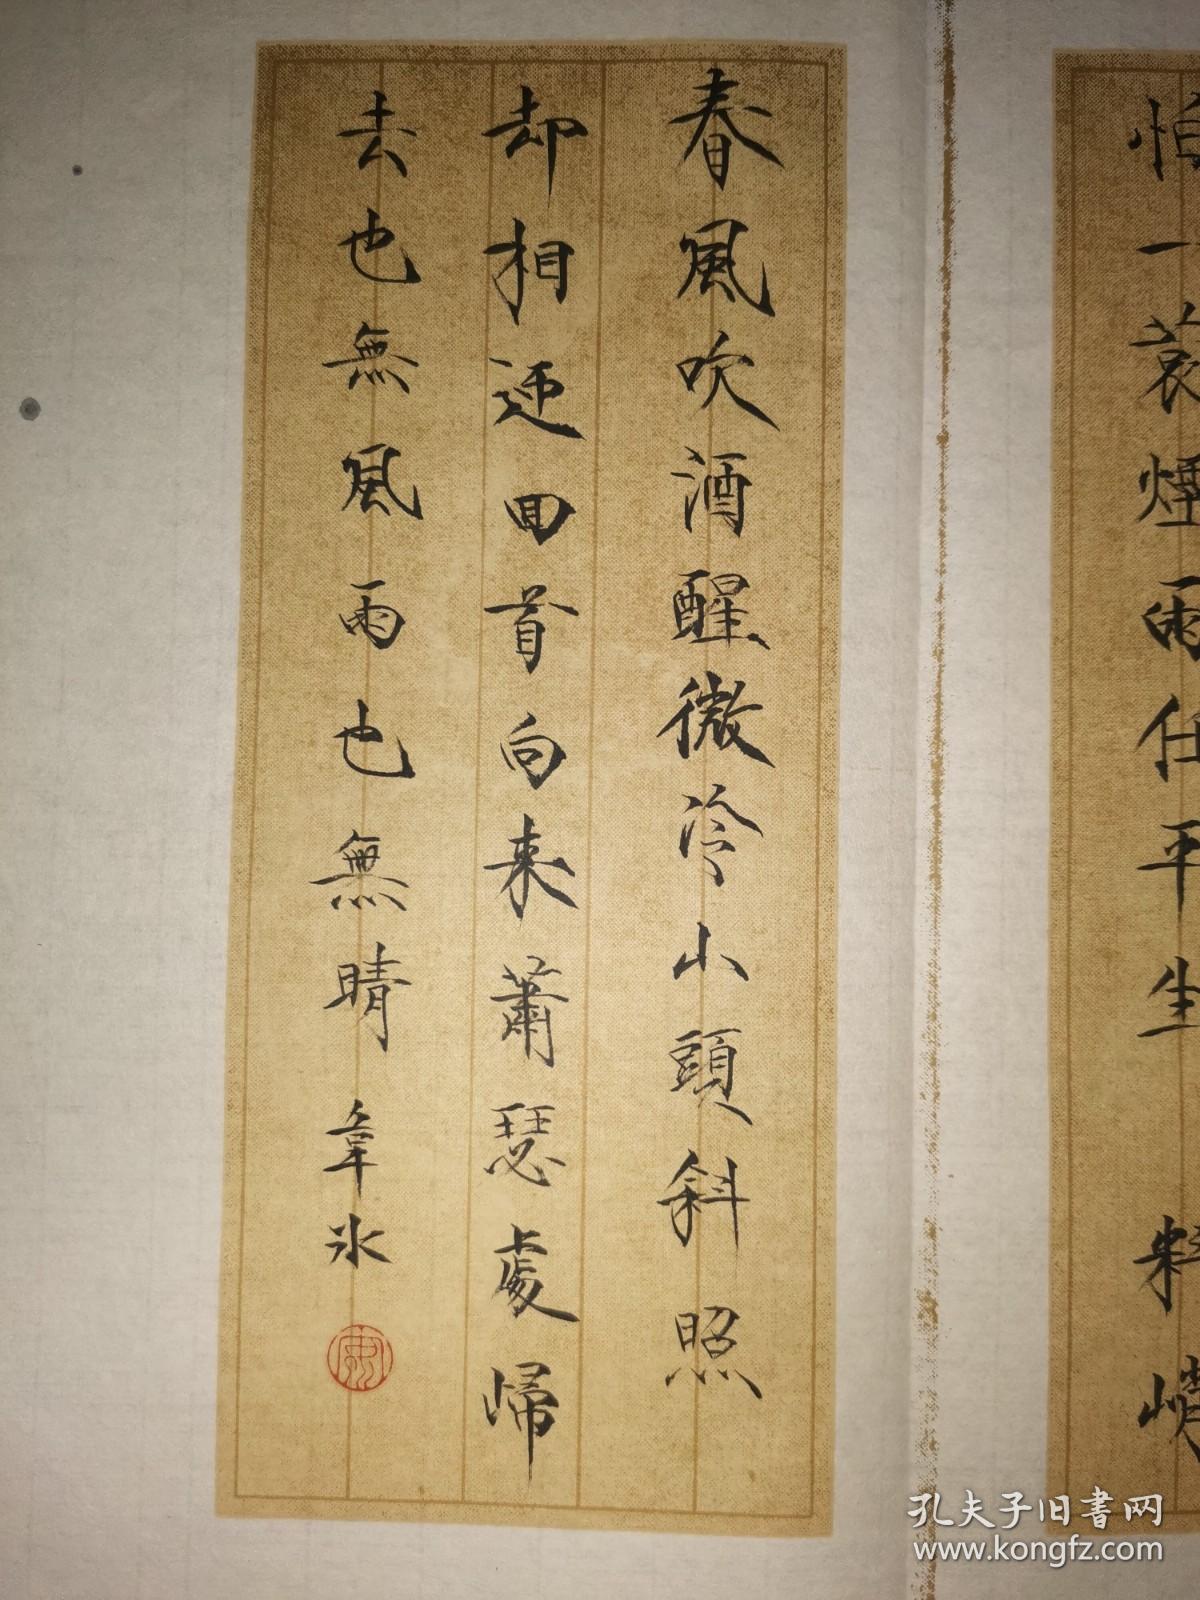 怕一蓑煙雨任平生 料峭
春風吹酒醒微冷山頭斜照
却相迎回首向来蕭瑟處歸
去也無風雨也無晴 韋冰
孔夫子旧書网
www.kongfz.com